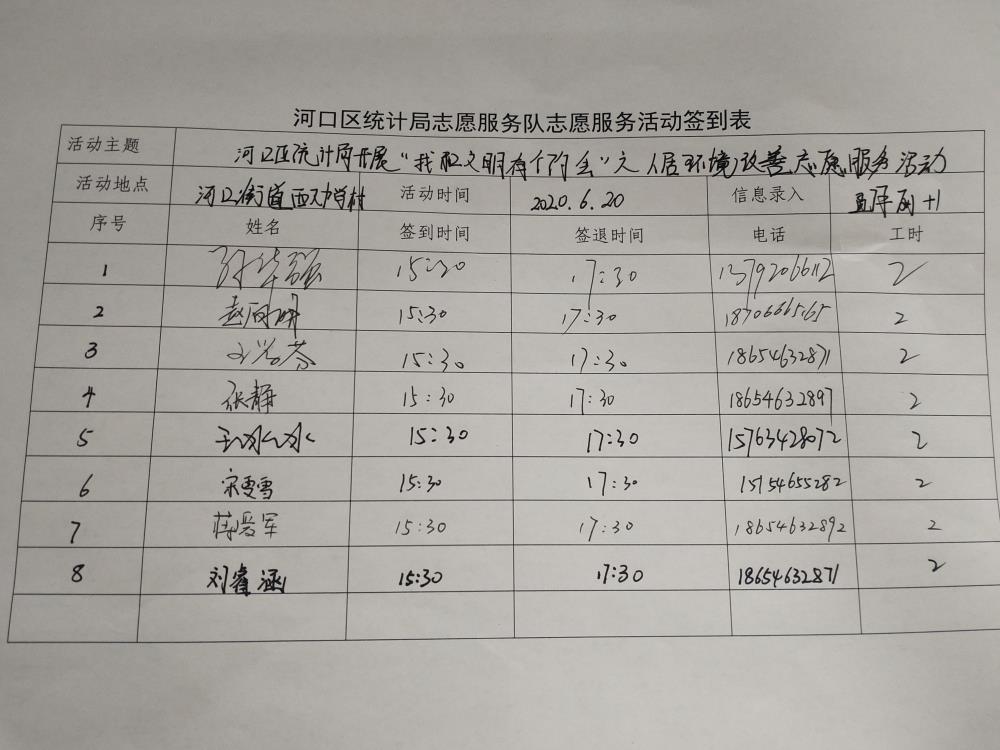 河口区统计局志愿服务队志愿服务活动签到表
活动主题 河口区统计局开展“我和文明有个约会”之人居环境改善志愿服务活动
活动地点 河口街道西 村 活动时间 2020.6.20 信息录入 +1
序号 姓名 签到时间 签退时间 电话 工时
1 孙华强 15:20 17:30 13792066112 2
2 赵 15:30 17:30 18706665165 2
3 15:30 17:30 18654632871 2
4 张静 15:30 17:30 18654632897 2
5 王冰冰 15:30 17:30 15763428072 2
6 宋雯雪 15:30 17:30 15154655282 2
7 蒋爱军 15:30 17:30 18654632892 2
8 刘睿涵 15:30 17:30 18654632871 2